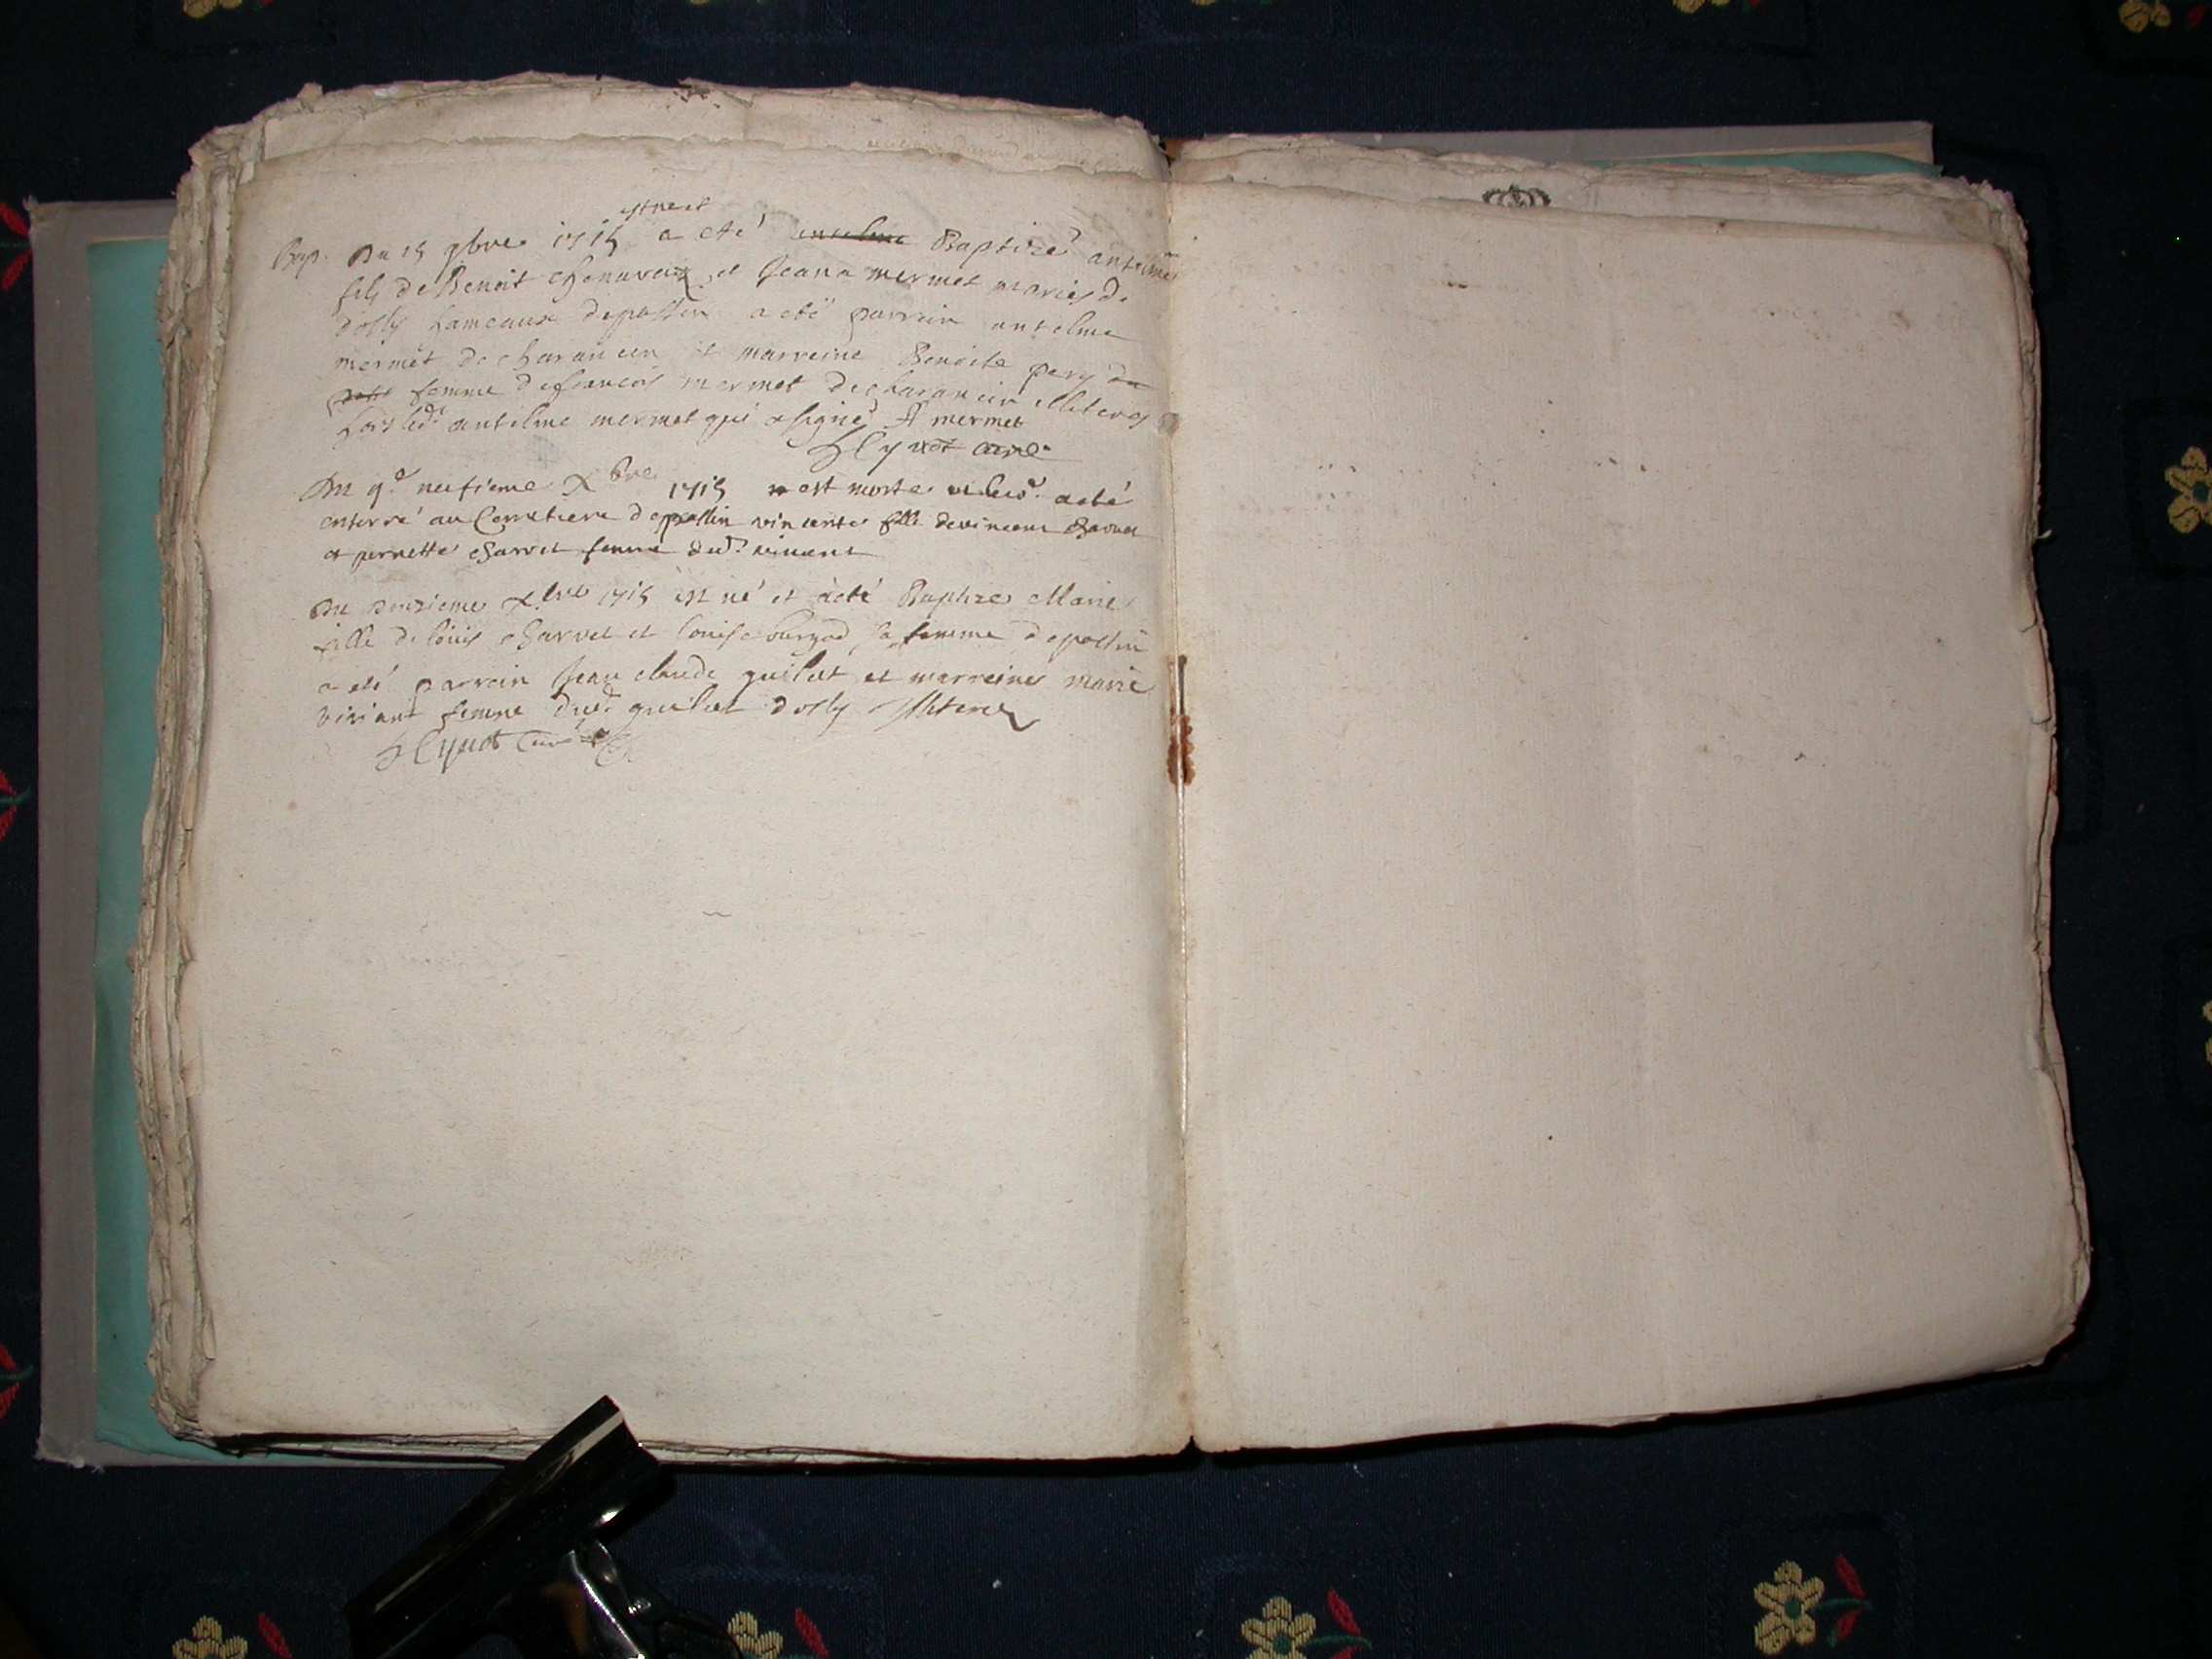 est né et
Bap. Du 15 9bre 1715 a eté anselme Baptizé antelme
fils de Benoit chenavaz et Jeana mermet mariés de
dosly hameaux depollin a eté parrain antelme
mermet de charancin et marreine Benoite pery de
femme defrancois mermet decharancin illiteres
hors led. antelme mermet qui a signé A mermet
Hyvot curé
Du 9e neufieme Xbre 1715 est morte et a eté
enterré au Cemetiere depollin vincente fille devincent charvet
et pernette charvet femme dud. vincent
Du douzieme Xbre 1715 est né et a eté Baptize Marie
fille de louis charvet et louise burgod sa femme depollin
a eté parrain Jean claude guilet et marreine marie
viviant femme dud. guilet dosly Illiteres
Hyvot Curé